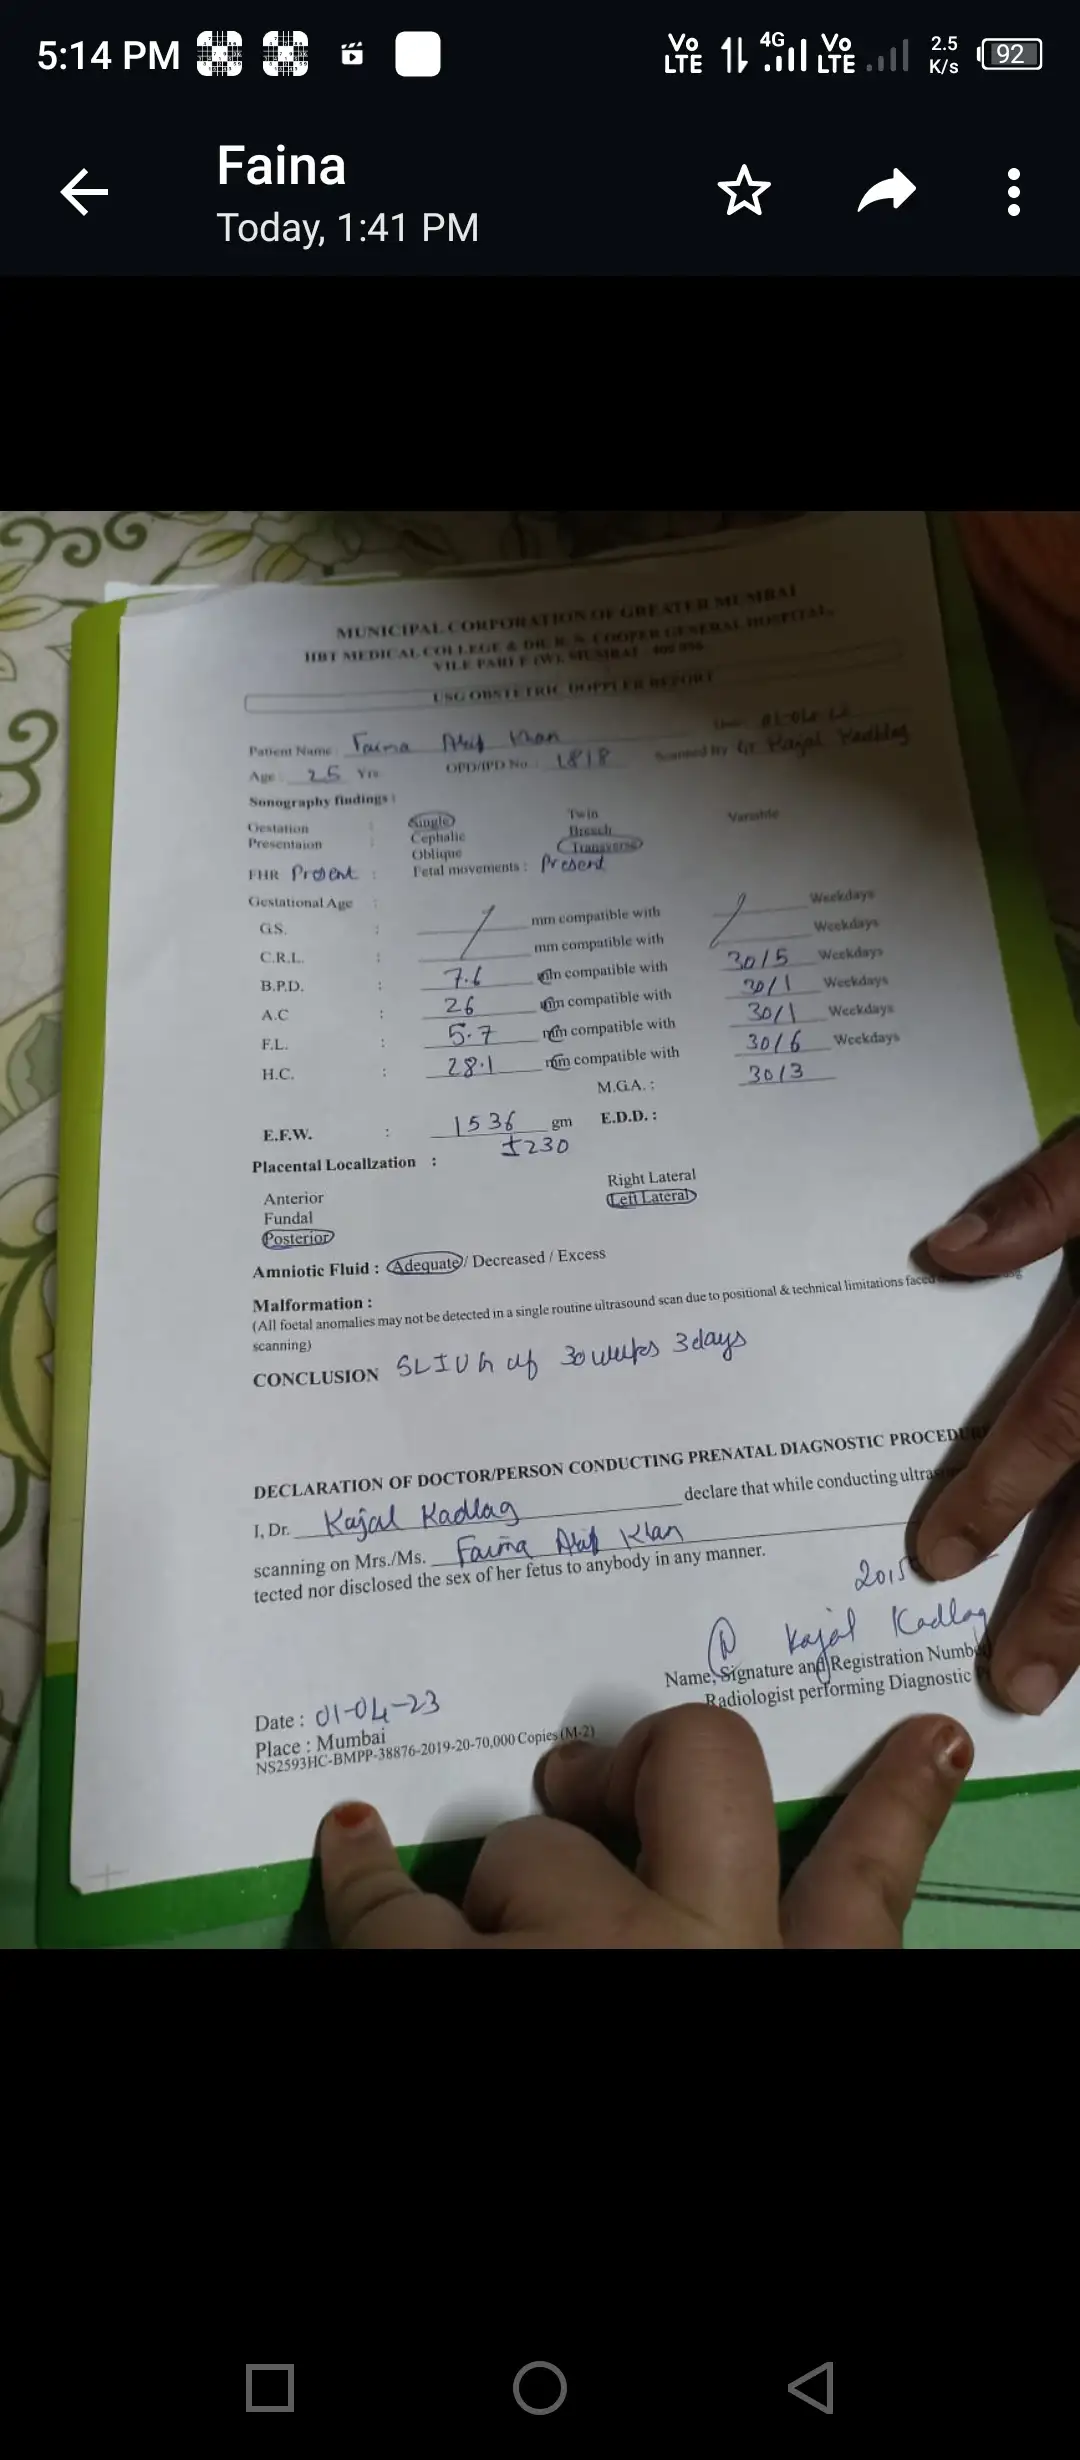 5:14 PM
Vo LTE 4G Vo LTE 2.5 K/s 92
Faina
Today, 1:41 PM
MUNICIPAL CORPORATION OF GREATER MUMBAI
HBT MEDICAL COLLEGE & DR. R. N. COOPER GENERAL HOSPITAL,
VILE PARLE (W), MUMBAI - 400 056
USG OBSTETRIC DOPPLER REPORT
Patient Name : Faima Khan
Age : 25 Yrs OPD/IPD No. : 1818 Scanned By Dr Kajal Kadlag
Sonography findings :
Gestation : Single Twin
Presentaion : Cephalic Breech Variable
Oblique Transverse
FHR Present : Fetal movements : Present
Gestational Age :
G.S. : mm compatible with Weekdays
C.R.L. : mm compatible with Weekdays
B.P.D. : 7.6 cm compatible with 30/5 Weekdays
A.C : 26 cm compatible with 30/1 Weekdays
F.L. : 5.7 cm compatible with 30/1 Weekdays
H.C. : 28.1 cm compatible with 30/6 Weekdays
M.G.A. : 30/3
E.F.W. : 1536 gm E.D.D. :
±230
Placental Locallzation :
Anterior Right Lateral
Fundal Left Lateral
Posterior
Amniotic Fluid : Adequate / Decreased / Excess
Malformation :
(All foetal anomalies may not be detected in a single routine ultrasound scan due to positional & technical limitations faced
scanning)
CONCLUSION SLIUG of 30 weeks 3 days
DECLARATION OF DOCTOR/PERSON CONDUCTING PRENATAL DIAGNOSTIC PROCEDURE
I, Dr. Kajal Kadlag declare that while conducting ultra
scanning on Mrs./Ms. Faima Khan
tected nor disclosed the sex of her fetus to anybody in any manner.
2015
Kajal Kadlag
Name, Signature and Registration Numb
Radiologist performing Diagnostic
Date : 01-04-23
Place : Mumbai
NS2593HC-BMPP-38876-2019-20-70,000 Copies (M-2)